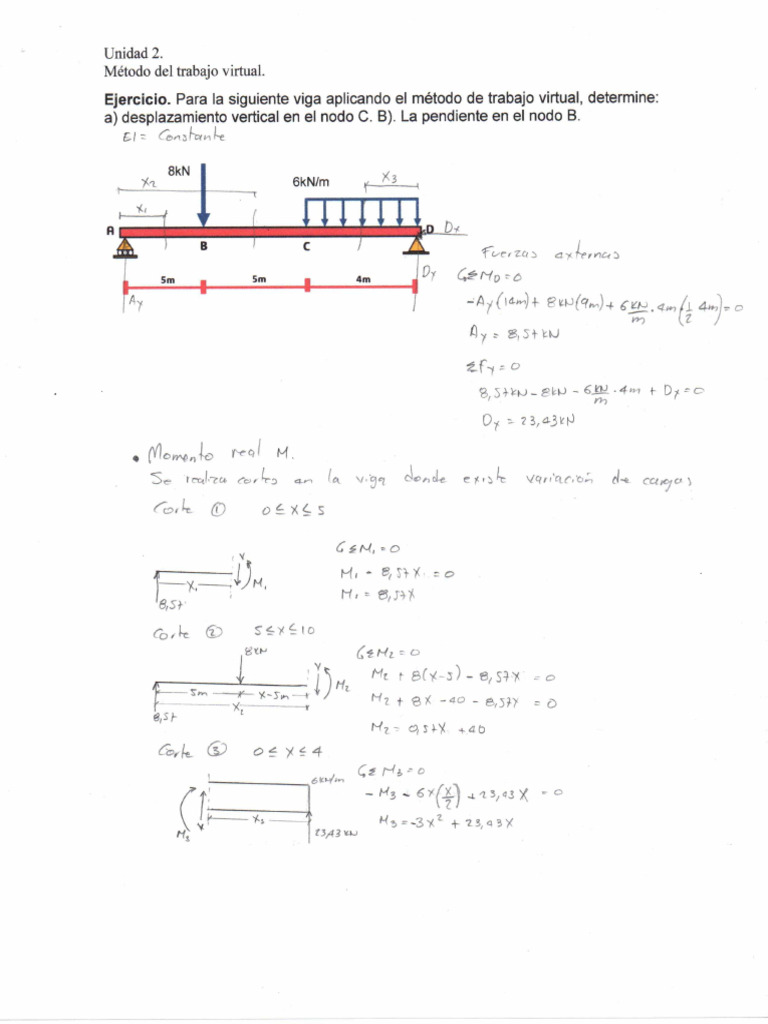 Unidad 2.
Método del trabajo virtual.
Ejercicio. Para la siguiente viga aplicando el método de trabajo virtual, determine:
a) desplazamiento vertical en el nodo C. B). La pendiente en el nodo B.
EI = Constante
8kN
X2
6kN/m
X3
X1
A
B
C
D
Dx
5m
5m
4m
Ay
Dy
Fuerzas externas
ΣMD=0
-Ay(14m)+ 8kN(9m)+6kN/m.4m(1/2 4m)=0
Ay = 8,57kN
ΣFy=0
8,57kN-8kN-6kN/m.4m + Dy=0
Dy = 23,43kN
• Momento real M.
Se realiza cortes en la viga donde existe variación de cargas
Corte ① 0≤X≤5
V
X1
M1
8,57
ΣM1=0
M1 - 8,57X = 0
M1 = 8,57X
Corte ② 5≤X≤10
8kN
V
5m
X-5m
M2
X2
8,57
ΣM2=0
M2 + 8(X-5) - 8,57X = 0
M2 + 8X -40 - 8,57X = 0
M2= 0,57X +40
Corte ③ 0≤X≤4
6kN/m
V
M3
X3
23,43 kN
ΣM3=0
-M3 - 6X(X/2) +23,43X = 0
M3=-3X² + 23,43X